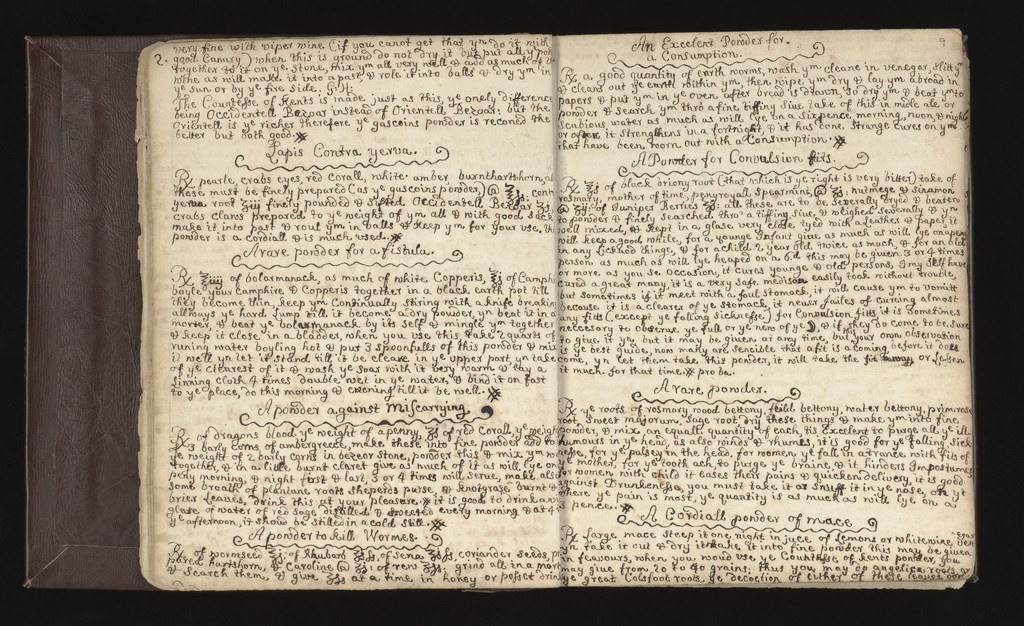 very fine with viper wine (if you canot get that yn do it with
2. good Canary) when this is ground do not dry it but put all yr pouders
together & to it on ye stone, mix ym all very well & add as much of the
wine as will make it into a past, & role it into balls & dry ym in
ye sun or by ye fire side.
The Countesse of Kents is made just as this, ye onely difference
being Occidentell Bezoar instead of Orientell Bezoar: but the
Orientell is ye richer therefore ye gascoins pouder is reconed the
better but both good.
Lapis Contra yerva.
℞ pearle, crabs eyes, red corall, white amber burnt hartshorn, all
these must be finely prepared (as ye gascoins pouder) @ ℥j, contra
yerva root ℥iij finely pounded & sifted Occidentell Bezoar
crabs claws prepared to ye weight of ym all & with good sack
make it into past & roul ym in balls & keep ym for your use. this
pouder is a cordiall & is much used.
A rare pouder for a fistula.
℞ ℥iiij of bolarmanack, as much of white Copperis, ℥j of Camphire
boyle your camphire & Copperis together in a black earth pot till
they become thin, keep ym Continually stiring with a knife breaking
allways ye hard lump till it become a dry pouder, yn beat it in a
morter, & beat ye bolarmanack by its self & mingle ym together
& keep it close, in a bladder, when you use this, take 2 quarts of
runing water boyling hot & put 3 spoonfulls of this pouder & mix
it well yn let it stand till it be cleare in ye upper part, yn take
of ye clearest of it & wash ye soar with it very warm & lay a
lining cloth 4 times double, wet in ye water, & bind it on fast
to ye place, do this morning & evening till it be well.
A pouder against Miscarrying.
℞ of dragons blood ye weight of a penny, of red corall, ye weight
of 3 barly corns of ambergreece, make these into fine pouder add to
ye weight of 2 barly corns in bezoar stone, pouder this & mix ym well
together, & in a little burnt claret give as much of it as will lye on a
peny morning, & night first & last, 3 or 4 times will serve, make also
some broath of plantane roots sheperds purse, & knotgrass burnt &
brier leaves, drink this at your pleasure, it is good to drink a wine
glase of water of red sage distilled & sweeted every morning & at 4 in
ye afternoon, it shoud be stilled in a cold still.
A pouder to kill Wormes.
℞ of wormseed ℥j, of Rhubarb of sena coriander seeds, pre
pared hartshorn, grind all in a morter
& search them, & give at a time in honey or posset drink
9
An Excelent Pouder for
a Consumption.
℞ a good quantity of earth worms, wash ym cleane in venegar, slitt ym
& cleans out ye earth within ym, then wipe ym dry & lay ym abroad in
papers & put ym in ye oven after bread is drawn, so dry ym & beat ym to
pouder & search ym thro a fine tiffiny sive take of this in mide ale or
scabious water as much as will lye on a sixpence morning, noon, & night
or often, it strengthens in a fortnight, & it has done strange cures on ym
that have been worn out with a Consumption.
A Pouder for Convulsion fitts.
℞ of black briony root (that which is ye right is very bitter) take of
rosmary, mother of time, penyroyall, spearmint, @ nutmegs & sinamon
@ of Juniper Berries all these are to be severally dryed & beaten
to pouder & finely searched thro' a tiffiny sive, & weighed severally & yn
well mixed, & kept in a glase very close tyed with a leather & paper it
will keep a good while, for a younge infant give as much as will lye on a peny
in any licknid thinge, & for a child 2 year old twice as much, & for an old
person as much as will lye heaped on a 6d this may be given 3 or 4 times
or more as you se occasion, it cures younge & old persons, I my self have
cured a great many, it is a very safe medison easily took without trouble,
but sometimes if it meet with a foul stomack, it will cause ym to vomitt
because it is a clearer of ye stomack, it never failes of cureing almost
any fitts (except ye faling sicknesse) for Convulsion fitts, it is sometimes
necesary to observe ye full or ye new of ye ☽, & if they do come be sure
to give it yn, but it may be given at any time, but your own observation
is ye best guide, now many are sensible that a fit is a coming before it does
come, yn let them take this pouder, it will take the fit away or Lessen
it much, for that time. proba.
A rare pouder.
℞ ye roots of rosmary wood bettony, feild bettony, water bettony, primrose
root sweet majorum, sage root dry these things & make ym into fine
pouder, & mix an equall quantity of each, tis excelent to purge all ye ill
humours in ye head, as also winds & rhumes, it is good for ye falling sick
nesse, for ye palsey in the head, for women yt fall in a trance with fits of
ye mother, for ye tooth ach, to purge ye braine, & it hinders Impostumes
for women with child it eases their pains & quickens delivery, it is good
against Drunkenesse, you must take it as snuff it in ye nose, on yt
where ye pain is most, ye quantity is as much as will lye on a
6 pence.
A Cordiall pouder of mace
℞ large mace steep it one night in juce of lemons or white wine
yn take it out & dry it make it into fine pouder this may be given
in feavours, when you would use ye Countesse of kents pouder, you
may give from 20 to 40 grains: thus you may do angelica roots, &
ye great Colsfoot roots, ye decoction of either of these leaves